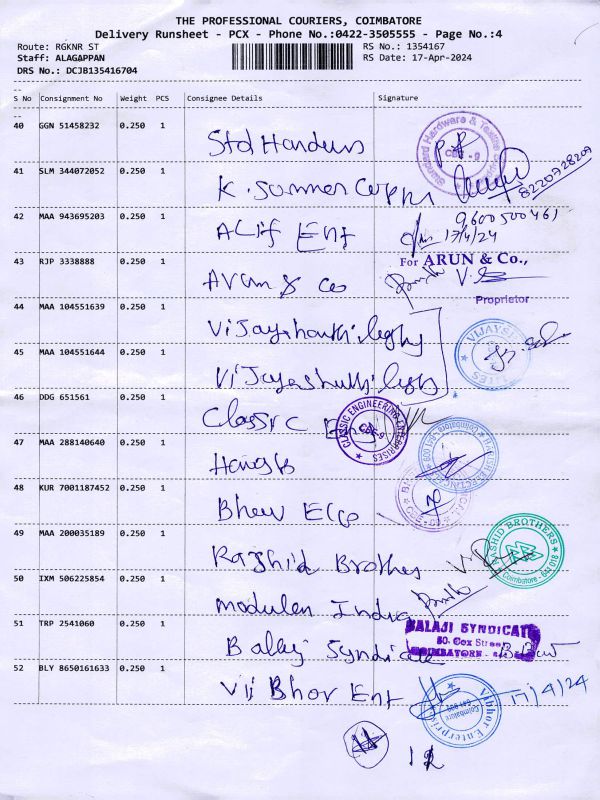 THE PROFESSIONAL COURIERS, COIMBATORE
Delivery Runsheet - PCX - Phone No.:0422-3505555 - Page No.:4
Route: RGKNR ST RS No.: 1354167
Staff: ALAGAPPAN RS Date: 17-Apr-2024
DRS No.: DCJB135416704
S No Consignment No Weight PCS Consignee Details Signature
40 GGN 51458232 0.250 1 Std Hardwrs
Standard Hardware & Textile CBE-9
41 SLM 344072052 0.250 1 K. Summer 8220728209
42 MAA 943695203 0.250 1 Alif Ent 9600500461
17/4/24
43 RJP 3338888 0.250 1 Arun & Co
For ARUN & Co.,
Proprietor
44 MAA 104551639 0.250 1 Vijayshanthi
VIJAYS
45 MAA 104551644 0.250 1 Vijayashanthi
46 DDG 651561 0.250 1 Classic Eng
CLASSIC ENGINEERING ENTERPRISES CBE-9
47 MAA 288140640 0.250 1
48 KUR 7001187452 0.250 1 Elec
49 MAA 200035189 0.250 1 Rashid Brothes
RASHID BROTHERS Coimbatore - 641 018
50 IXM 506225854 0.250 1 Modulen India
51 TRP 2541060 0.250 1 Balaji Syndicate
BALAJI SYNDICATE
50, Cox Street
COIMBATORE
52 BLY 8650161633 0.250 1 Vii Bhor Ent 17/4/24
Vibhor Enterprises Coimbatore
12